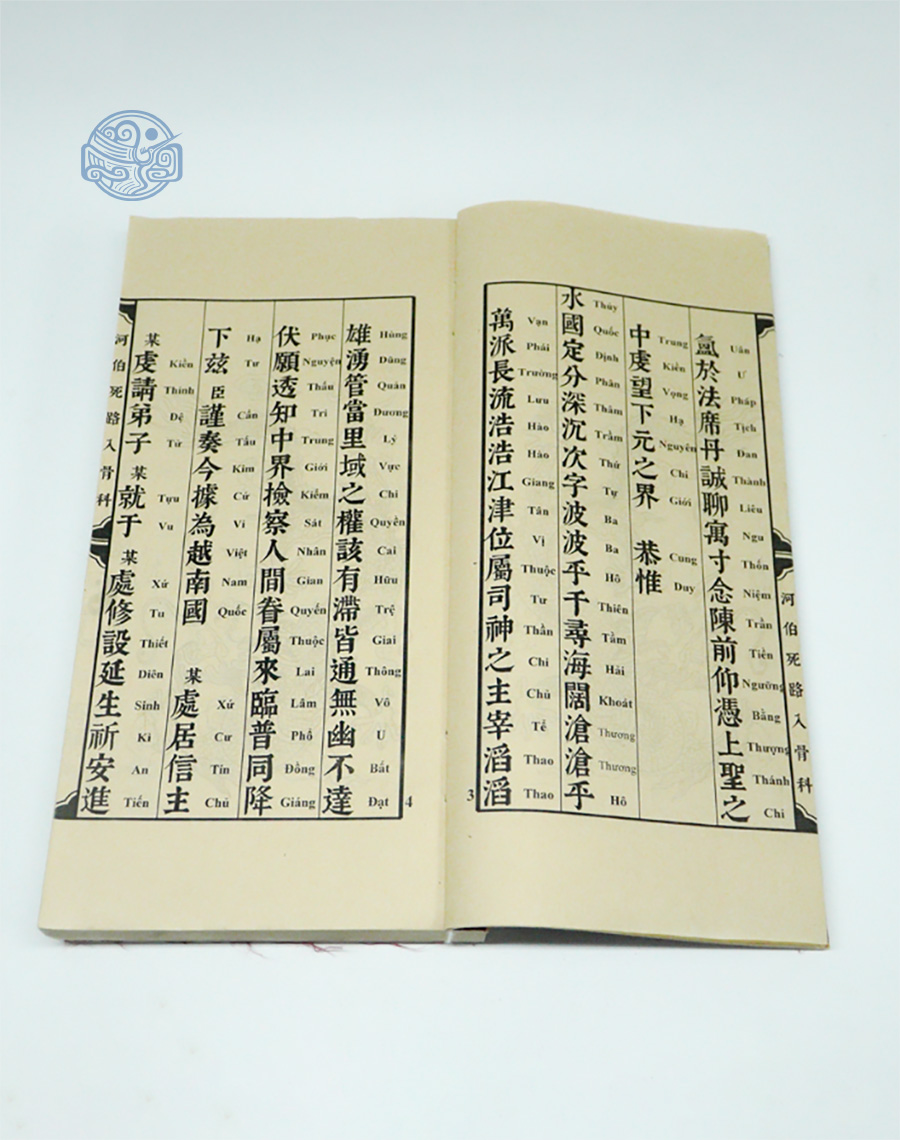 氳於法席丹誠聊寓寸念陳前仰憑上聖之
Uân Ư Pháp Tịch Đan Thành Liêu Ngụ Thốn Niệm Trần Tiền Ngưỡng Bằng Thượng Thánh Chi
中虔望下元之界 恭惟
Trung Kiền Vọng Hạ Nguyên Chi Giới Cung Duy
水國定分深沉次字波波乎千尋海闊滄滄乎
Thủy Quốc Định Phân Thâm Trầm Thứ Tự Ba Ba Hô Thiên Tầm Hải Khoát Thương Thương Hô
萬派長流浩浩江津位屬司神之主宰滔滔
Vạn Phái Trường Lưu Hào Hào Giang Tân Vị Thuộc Tư Thần Chi Chủ Tể Thao Thao
河伯死路入骨科
3
雄湧管當里域之權該有滯皆通無幽不達
Hùng Dũng Quản Đương Lý Vực Chi Quyền Cai Hữu Trệ Giai Thông Vô U Bất Đạt
伏願透知中界檢察人間眷屬來臨普同降
Phục Nguyện Thấu Tri Trung Giới Kiểm Sát Nhân Gian Quyến Thuộc Lai Lâm Phổ Đồng Giáng
下茲臣謹奏今據為越南國 某處居信主
Hạ Tư Cẩn Tấu Kim Cứ Vi Việt Nam Quốc Xứ Cư Tín Chủ
某虔請弟子某就于某處修設延生祈安進
Kiền Thỉnh Đệ Tử Tựu Vu Xứ Tu Thiết Diên Sinh Kì An Tiến
河伯死路入骨科
4